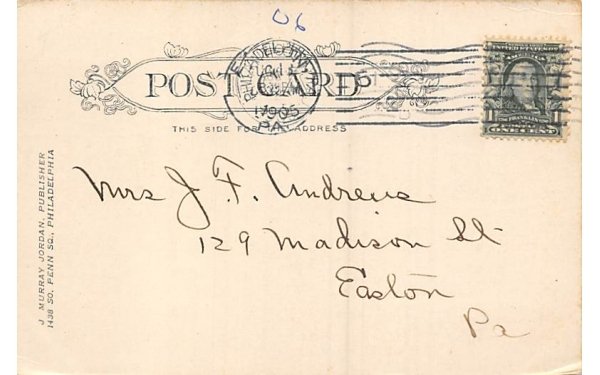 06
POST CARD
THIS SIDE FOR ADDRESS
PHILADELPHIA
1905
PA.
UNITED STATES OF AMERICA
1 FRANKLIN 1
ONE CENT
Mrs J. F. Andrews
129 Madison St
Easton
Pa
J MURRAY JORDAN, PUBLISHER
1438 SO. PENN SQ., PHILADELPHIA